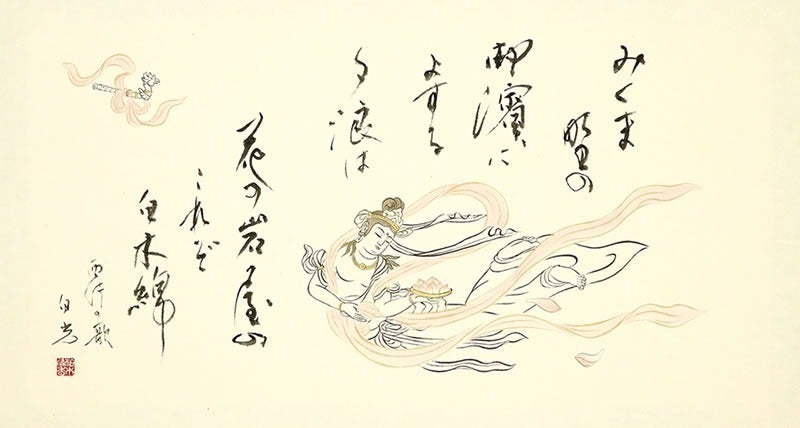 みくま
野の
御濱に
よする
夕浪は
花の岩屋の
これぞ
白木綿
西行の歌